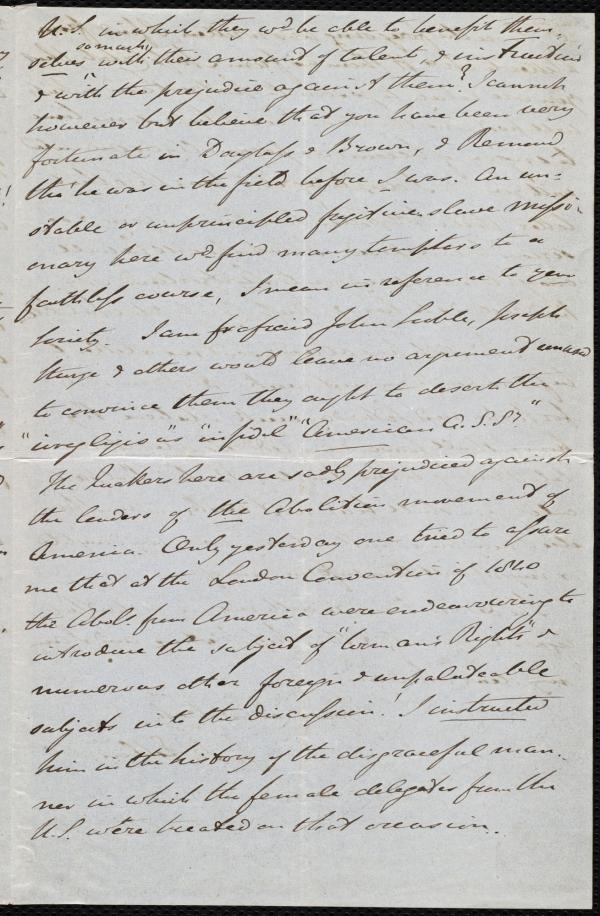 U.S. in which they wd be able to benefit them-
selves so much with their amount of talent, & instruction
& "with the prejudice against them"? I cannot
however but believe that you have been very
fortunate in Douglass & Brown, & Remond
tho' he was in the field before I was. An un-
stable or unprincipled fugitive slave missi-
onary here wd find many tempters to a
faithless course, I mean in reference to your
Society. I am afraid John Scoble, Joseph
Sturge & others would leave no argument unused
to convince them they ought to desert the
"irreligious" "infidel" "American A.S. Sy"
The Quakers here are sadly prejudiced against
the leaders of the Abolition movement of
America. Only yesterday one tried to assure
me that at the London Convention of 1840
the Abols. from America were endeavouring to
introduce the subject of "Woman's Rights" &
numerous other foreign & unpalateable
subjects into the discussion! I instructed
him in the history of the disgraceful man-
ner in which the female delegates from the
U.S. were treated on that occasion.